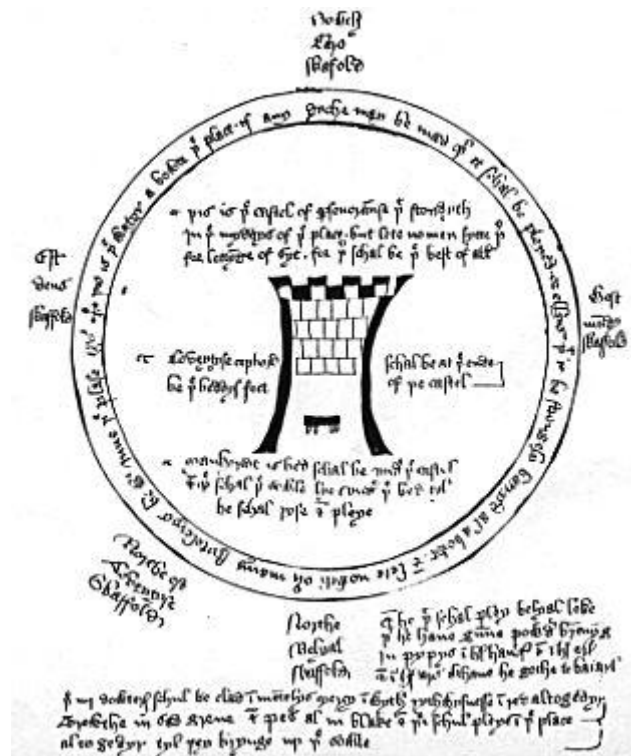 Sowth
Caro
skafold
þis is þe watyr a bowte þe place if any dyche may be mad þer it schal be pleyed or ellys þat it be strongely barryd al a bowt & lete nowth ouer many stytelerys be withinne þe plase
þis is þe castel of perseueraunse þat stondyth
in þe myddys of þe place but lete no men sytte þer
for lettynge of syt for þer schal be þe best of all
Est
deus
skaffold
West
mundus
skaffold
Coveytyse copbord
be þe beddys feet
schal be at þe ende
of þe castel
Mankyndeis bed schal be vndyr þe castel
& þer schal þe sowle lye vndyr þe bed tyl
he schal ryse & pleye
Northe est
Coveytyse
skaffold
Northe
Belyal
skaffold
& he þat schal pley belyal loke
þat he haue gunne powdyr brennynge
in pypys in hys handys & in hys erys
& in hys ars whanne he gothe to batayl
þe iiij dowterys schul be clad in mentelys mercy in wyth rythwysnesse in red altogedyr
Trewthe in sad grene & Pes al in blake & þei schul pleye in þe place
al to gedyr tyl þey brynge up þe sowle